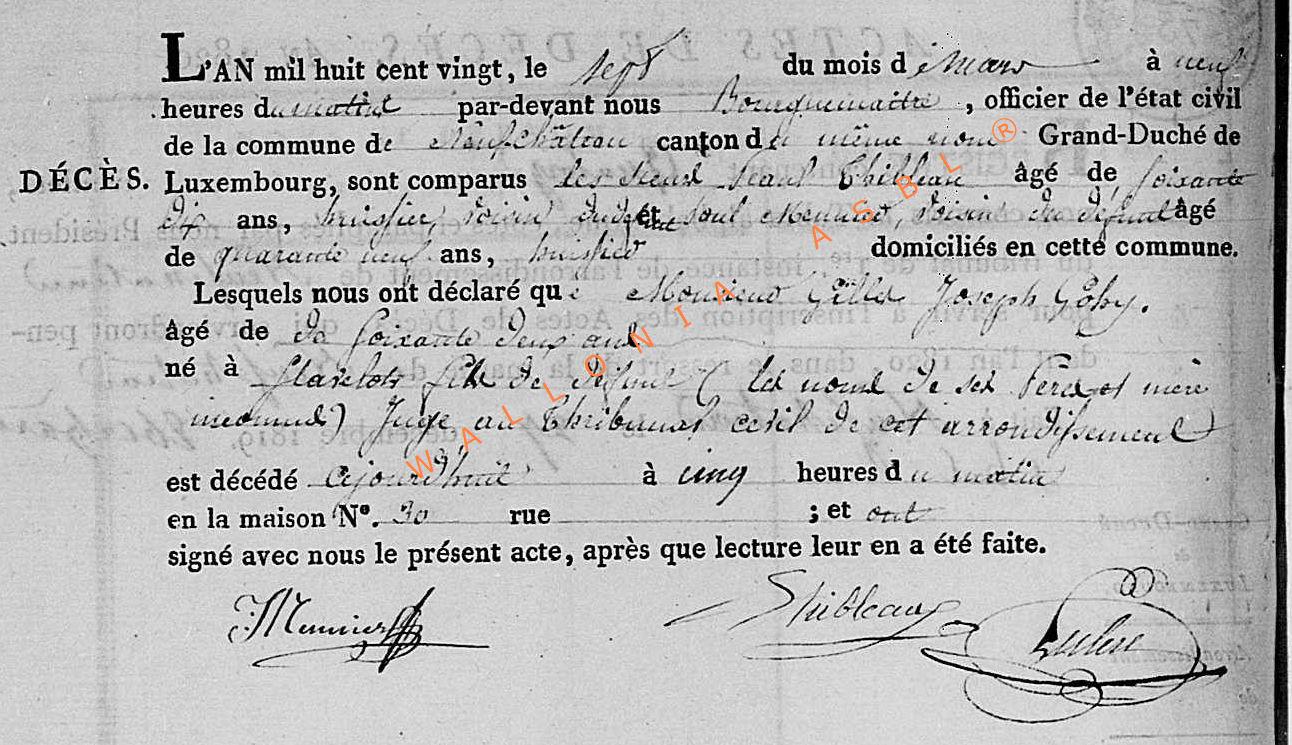 L'AN mil huit cent vingt, le sept du mois de mars à neuf
heures du matin par-devant nous Bourguemaitre, officier de l'état civil
de la commune de neufchâteau canton du même nom Grand-Duché de
DÉCÈS. Luxembourg, sont comparus les sieurs âgé de soixante
dix ans, huissier, voisin du et voisin du défunt âgé
de quarante neuf ans, huissier domiciliés en cette commune.
Lesquels nous ont déclaré que Monsieur Gilles Joseph
âgé de de soixante deux ans
né à fils de défunt (les noms de ses Père et mère
inconnus) Juge au Thribunal civil de cet arrondissement
est décédé cejourd'huit à cinq heures du matin
en la maison N°. 30 rue ; et ont
signé avec nous le présent acte, après que lecture leur en a été faite.
JMunier
WALLONIA ASBL ®